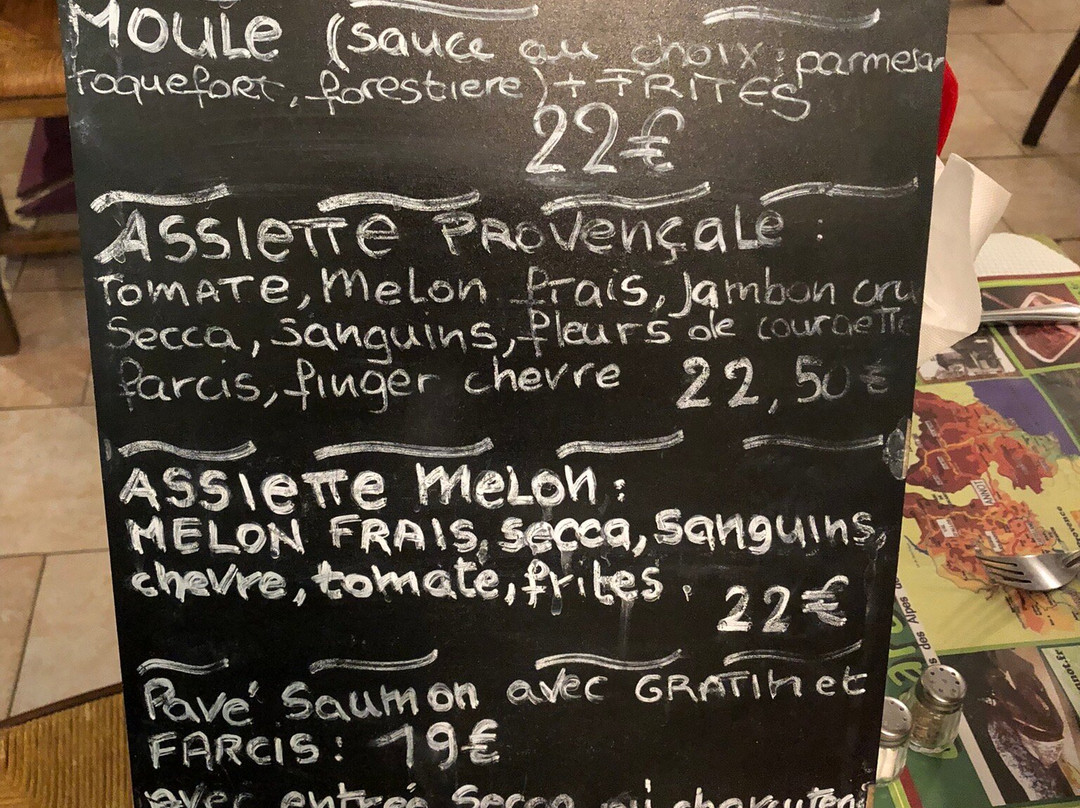 MOULE (sauce au choix : parmesan
roquefort, forestiere) + FRITES
22€
ASSIETTE PROVENÇALE :
TOMATE, Melon frais, Jambon cru
Secca, Sanguins, fleurs de courgette
farcis, finger chevre 22,50€
ASSIETTE MELON :
MELON FRAIS, secca, Sanguins,
chevre, tomate, frites. 22€
Pavé Saumon avec GRATIN et
FARCIS : 19€
avec entrée Secca
ANNOT
des Alpes